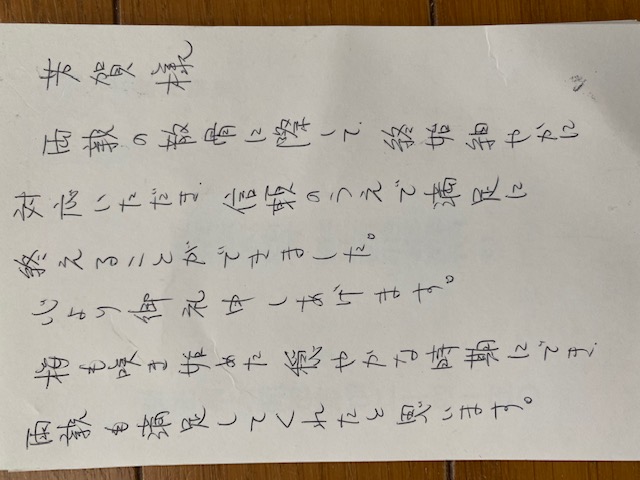 芳賀 様
両親の散骨に際して、終始細やかに
対応いただき、信頼のうえで満足に
終えることができました。
心より御礼申しあげます。
桜も咲き始めた穏やかな時期にでき、
両親も満足してくれたと思います。